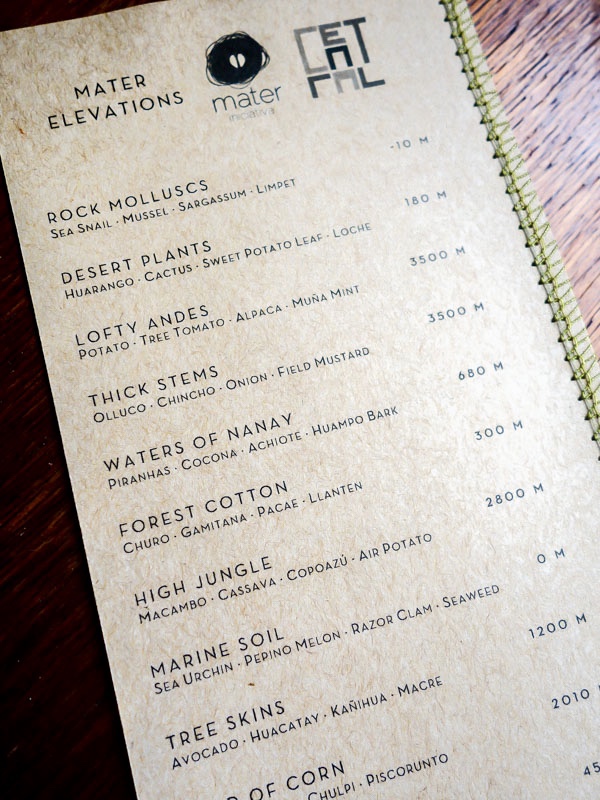 MATER
ELEVATIONS
mater
iniciativa
CENTRAL
ROCK MOLLUSCS -10 M
SEA SNAIL · MUSSEL · SARGASSUM · LIMPET
DESERT PLANTS 180 M
HUARANGO · CACTUS · SWEET POTATO LEAF · LOCHE
LOFTY ANDES 3500 M
POTATO · TREE TOMATO · ALPACA · MUÑA MINT
THICK STEMS 3500 M
OLLUCO · CHINCHO · ONION · FIELD MUSTARD
WATERS OF NANAY 680 M
PIRANHAS · COCONA · ACHIOTE · HUAMPO BARK
FOREST COTTON 300 M
CHURO · GAMITANA · PACAE · LLANTEN
HIGH JUNGLE 2800 M
MACAMBO · CASSAVA · COPOAZÚ · AIR POTATO
MARINE SOIL 0 M
SEA URCHIN · PEPINO MELON · RAZOR CLAM · SEAWEED
TREE SKINS 1200 M
AVOCADO · HUACATAY · KAÑIHUA · MACRE
OF CORN 2010
CHULPI · PISCORUNTO